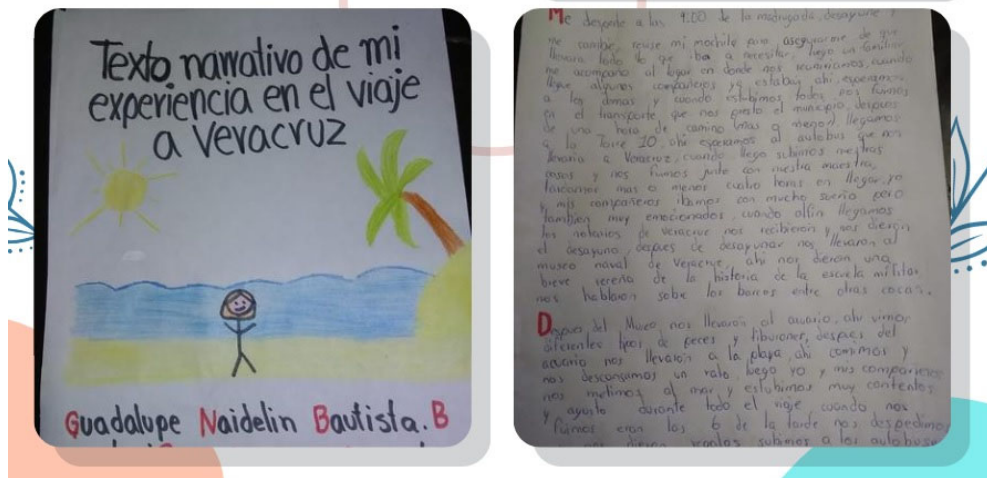 Texto narrativo de mi
experiencia en el viaje
a Veracruz
Guadalupe Naidelin Bautista. B
Me desperte a las 4:00 de la madrugada, desayune y
me cambie, revise mi mochila para asegurarme de que
llevara todo lo que iba a necesitar, luego un familiar
me acompaño al lugar en donde nos reuniriamos, cuando
llegue algunos compañeros ya estaban ahi, esperamos
a los demas y cuando estubimos todos nos fuimos
en el transporte que nos presto el municipio, despues
de una hora de camino mas o menos llegamos
a la Torre 10, ahi esperamos al autobus que nos
llevaria a Veracruz, cuando llego subimos nuestras
cosas y nos fuimos junto con nuestra maestra,
tardamos mas o menos cuatro horas en llegar, yo
y mis compañeros ibamos con mucho sueño pero
tambien muy emocionados, cuando alfin llegamos
los notarios de veracruz nos recibieron y nos dieron
el desayuno, depues de desayunar nos llevaron al
museo naval de Veracruz, ahi nos dieron una
breve sereña de la historia de la escuela militar
nos hablaron sobe los barcos entre otras cocas.
Despues del Museo, nos llevaron al acuario, ahi vimos
diferentes tipos de peces y tiburones, despues del
acuario nos llevaron a la playa, ahi comimos y
nos descansamos un rato, luego yo y mis compañeros
nos metimos al mar y estubimos muy contentos
y agusto durante todo el viaje, cuando nos
fuimos eran las 6 de la tarde nos despedimos
nos dieron regalos subimos a los autobuses